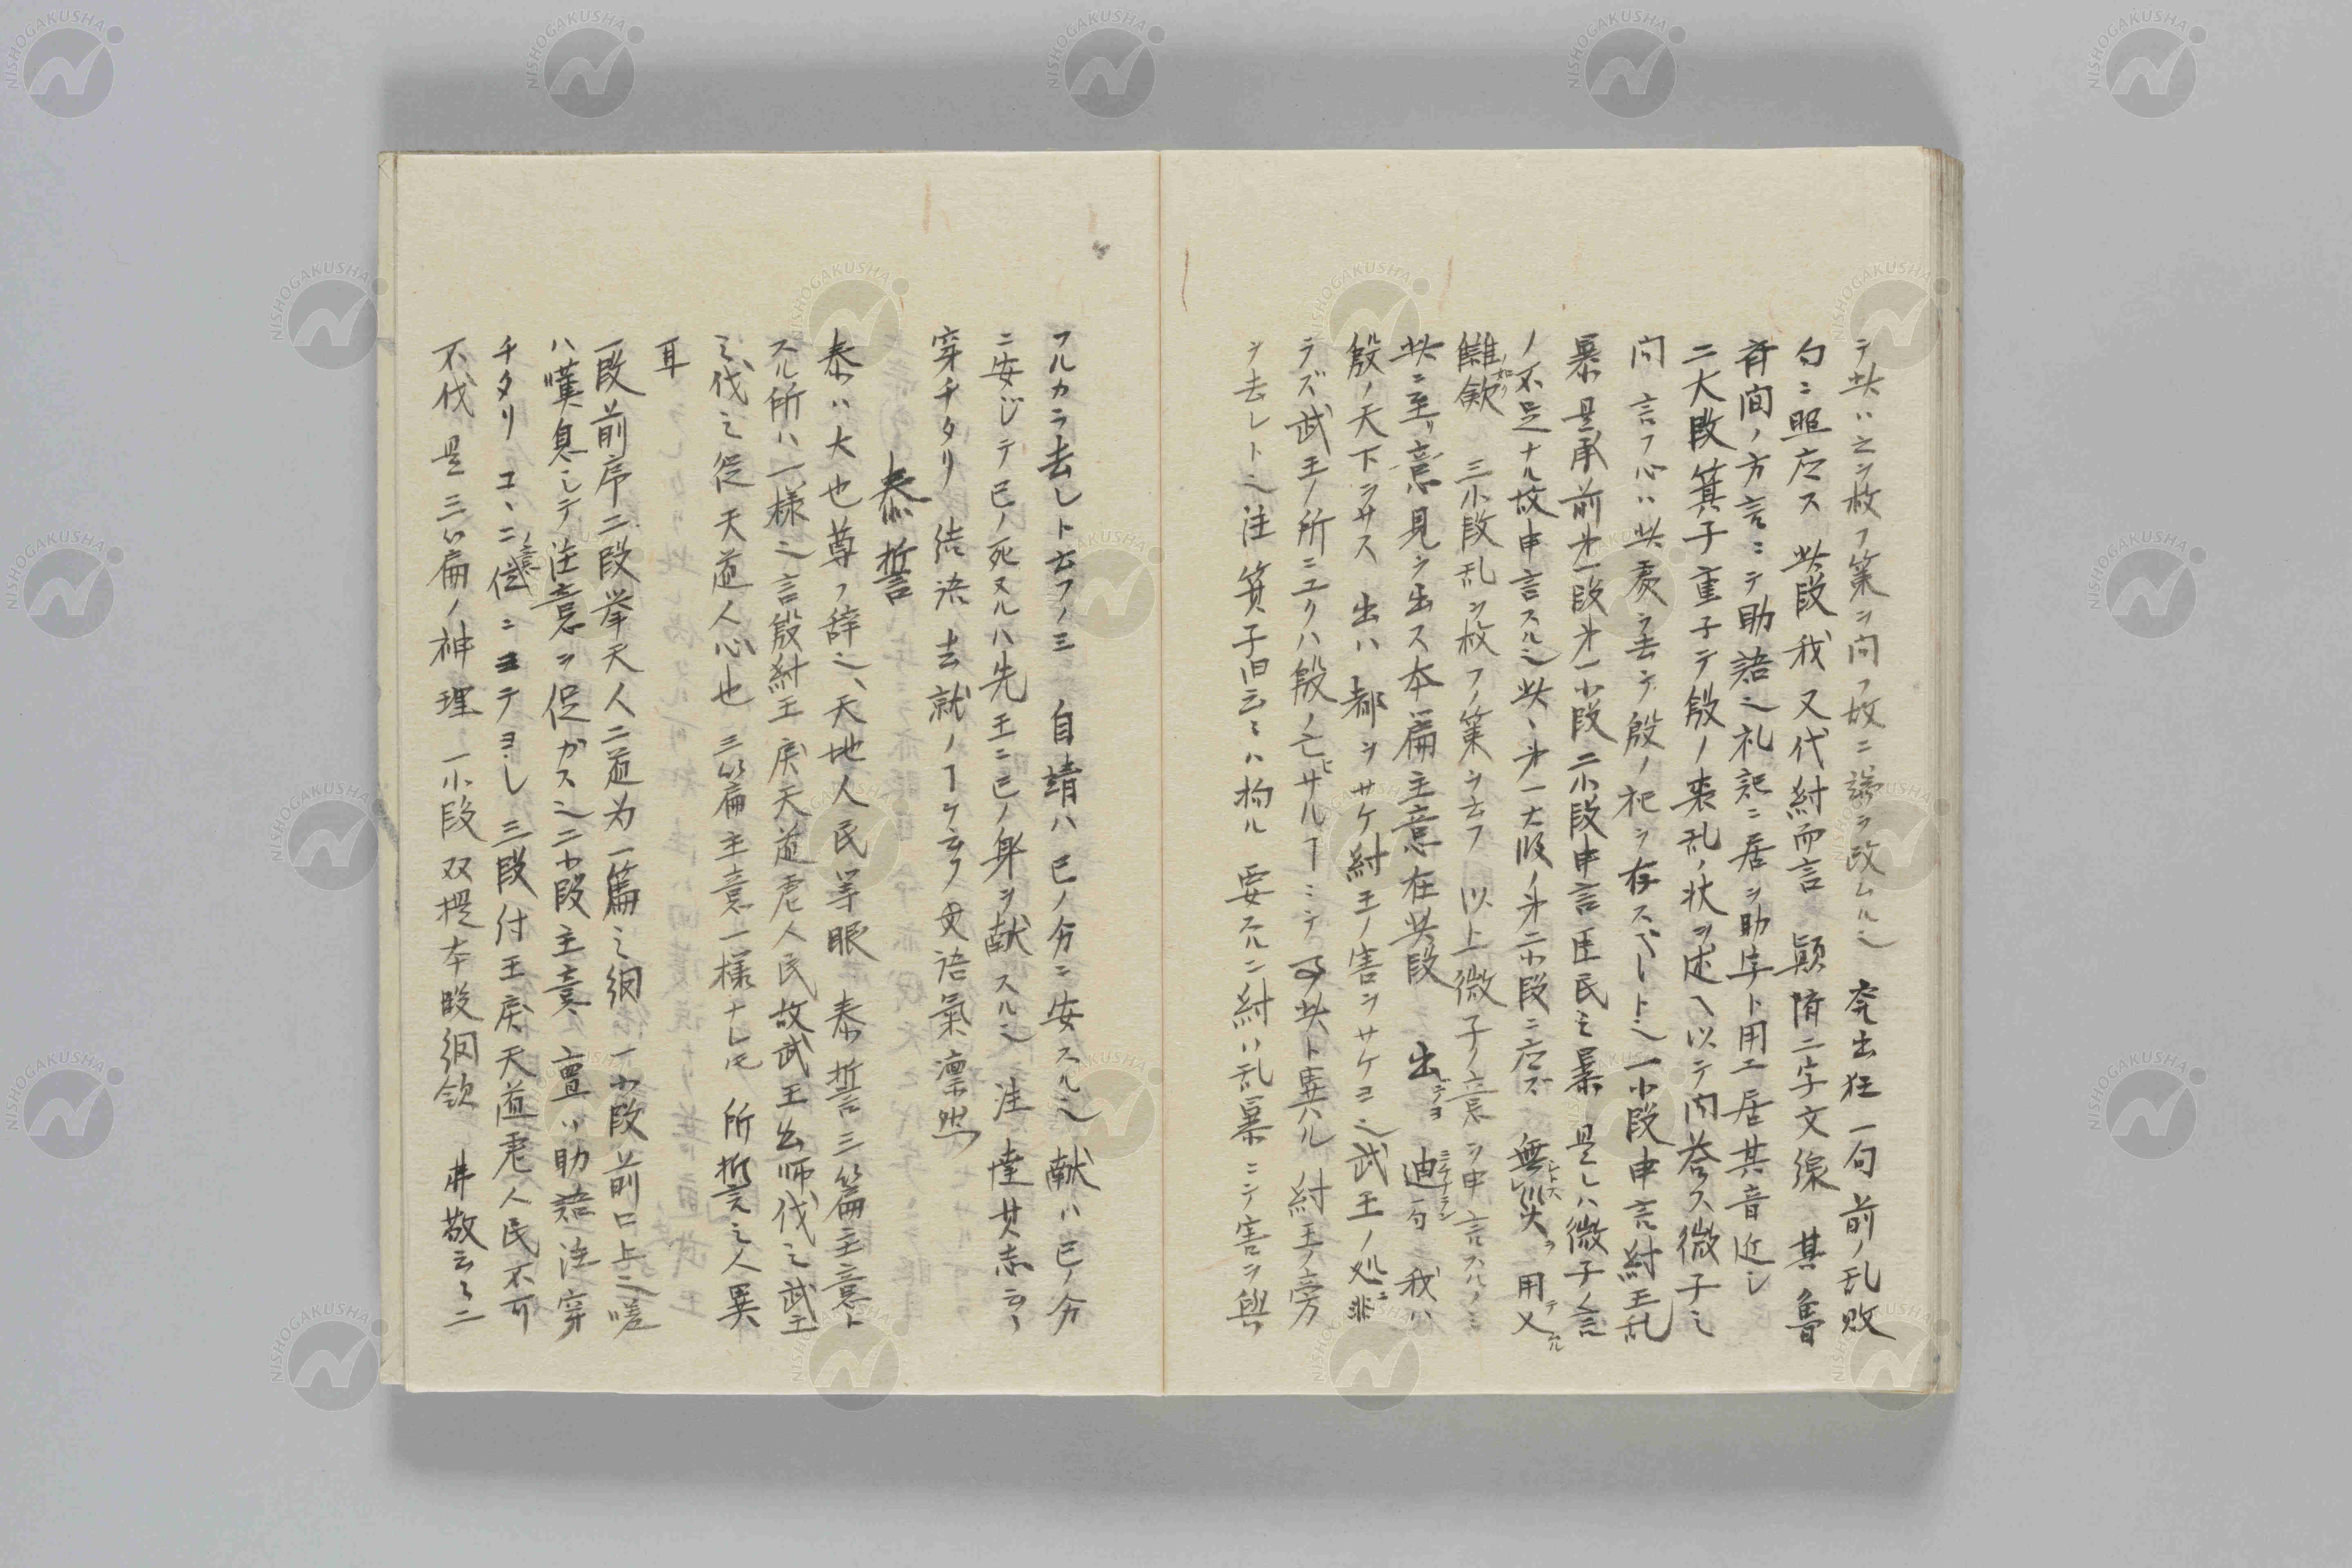 テ此ハ之ヲ救フ策ヲ問フ故ニ端ヲ改ムル也 発出狂一句前ノ乱敗
句ニ照应ス 此段我又代紂而言 顛隮二字文線 其魯
斉間ノ方言ニテ助語也礼記ニ居ヲ助字ト用エ居其音近し
二大段箕子重子テ殷ノ乱ノ状ヲ述ヘ以テ問答ス微子之
問 言フ心ハ此處ヲ去テ殷ノ祀ヲ存スベシト也一小段申言紂王乱
暴 是承前㐧一段㐧一小段 二小段申言臣民之暴 是レハ微子ノ言
ノ不足ナル故申言スル也此ハ㐧一大段ノ㐧二小段ニ应ズ 無災ヲ 用乂
讎斂 三小段乱ヲ救フノ策ヲ云フ 以上微子ノ意ヲ申言スルノミ
此ニ至リ意見ヲ出ス本篇主意在此段 出デヨ 迪一句 我ハ
殷ノ天下ヲサス 出ハ都ヲサケ紂王ノ害ヲサケヨ也武王ノ処ニ非
ラズ武王ノ所ニユリハ殷ノ亡ヒサルヿミテ 此ト異ハル 紂王ノ旁
ヲ去レト也 注箕子旧云々ハ拘ル 要スルニ紂ハ乱暴ニシテ害ヲ與
フルカラ去レト云フノミ 自靖ハ己ノ分ニ安スル也 献ハ己ノ分
ニ安ジテ己ノ死スルハ先王ニ己ノ身ヲ献スルノ也 注 其志云々
穿チタリ 结語 去就ノヿヲ云フ 文語氣凛然
泰誓
泰ハ大也尊フ辞也、天地人民等眼 泰誓三篇主意ト
スル所ハ一様也言殷紂王戻天道虐人民故武王出師伐之武王
之伐之従天道人心也 三篇主意一様ナレ𪜈 所誓之人異
耳
一段前序二段挙天人二道为一篇之綱 一小段前口上也嗟
ハ嘆息シテ注意ヲ促ガス也二小段主意 亶ハ助語注穿
チタリ コヽニ位ニヨテヨシ 三段付王戻天道虐人民不可
不伐 是三篇ノ神理 一小段双提本段綱領 弗敬云々二